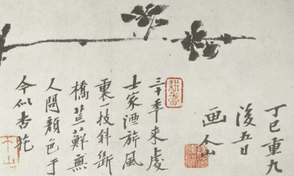 丁巳重九
後五日
三十年来處
士家酒旂風
裏一枝斜斷
橋荒蘚無
人問顔色于
今似杏花